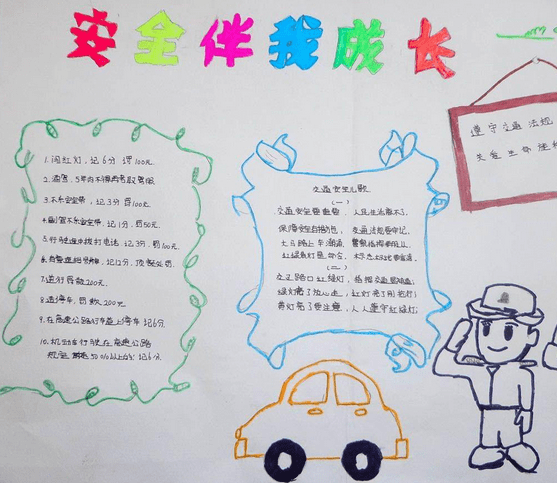 安全伴我成长
遵守交通法规
关爱生命
1.闯红灯,记6分 罚100元.
2.酒驾,5年内不得再考取驾照
3.不系安全带,记3分罚100元.
4.副驾不系安全带,记1分,罚50元.
5.行驶途中拨打电话,记3分,罚100元.
记12分,顶格处罚.
7.逆行罚款200元.
8.违停车,罚款200元
9.在高速公路行车道上停车 记6分.
10.机动车行驶在高速公路
50%以上的:记6分.
交通安全儿歌
(一)
交通安全最重要,人民生活离不了.
交通法规要牢记.
大马路上车潮涌
(二)
交叉路口红绿灯,指挥交通
绿灯亮了放心走,红灯亮了别抢行;
黄灯亮了要注意,人人遵守红绿灯;